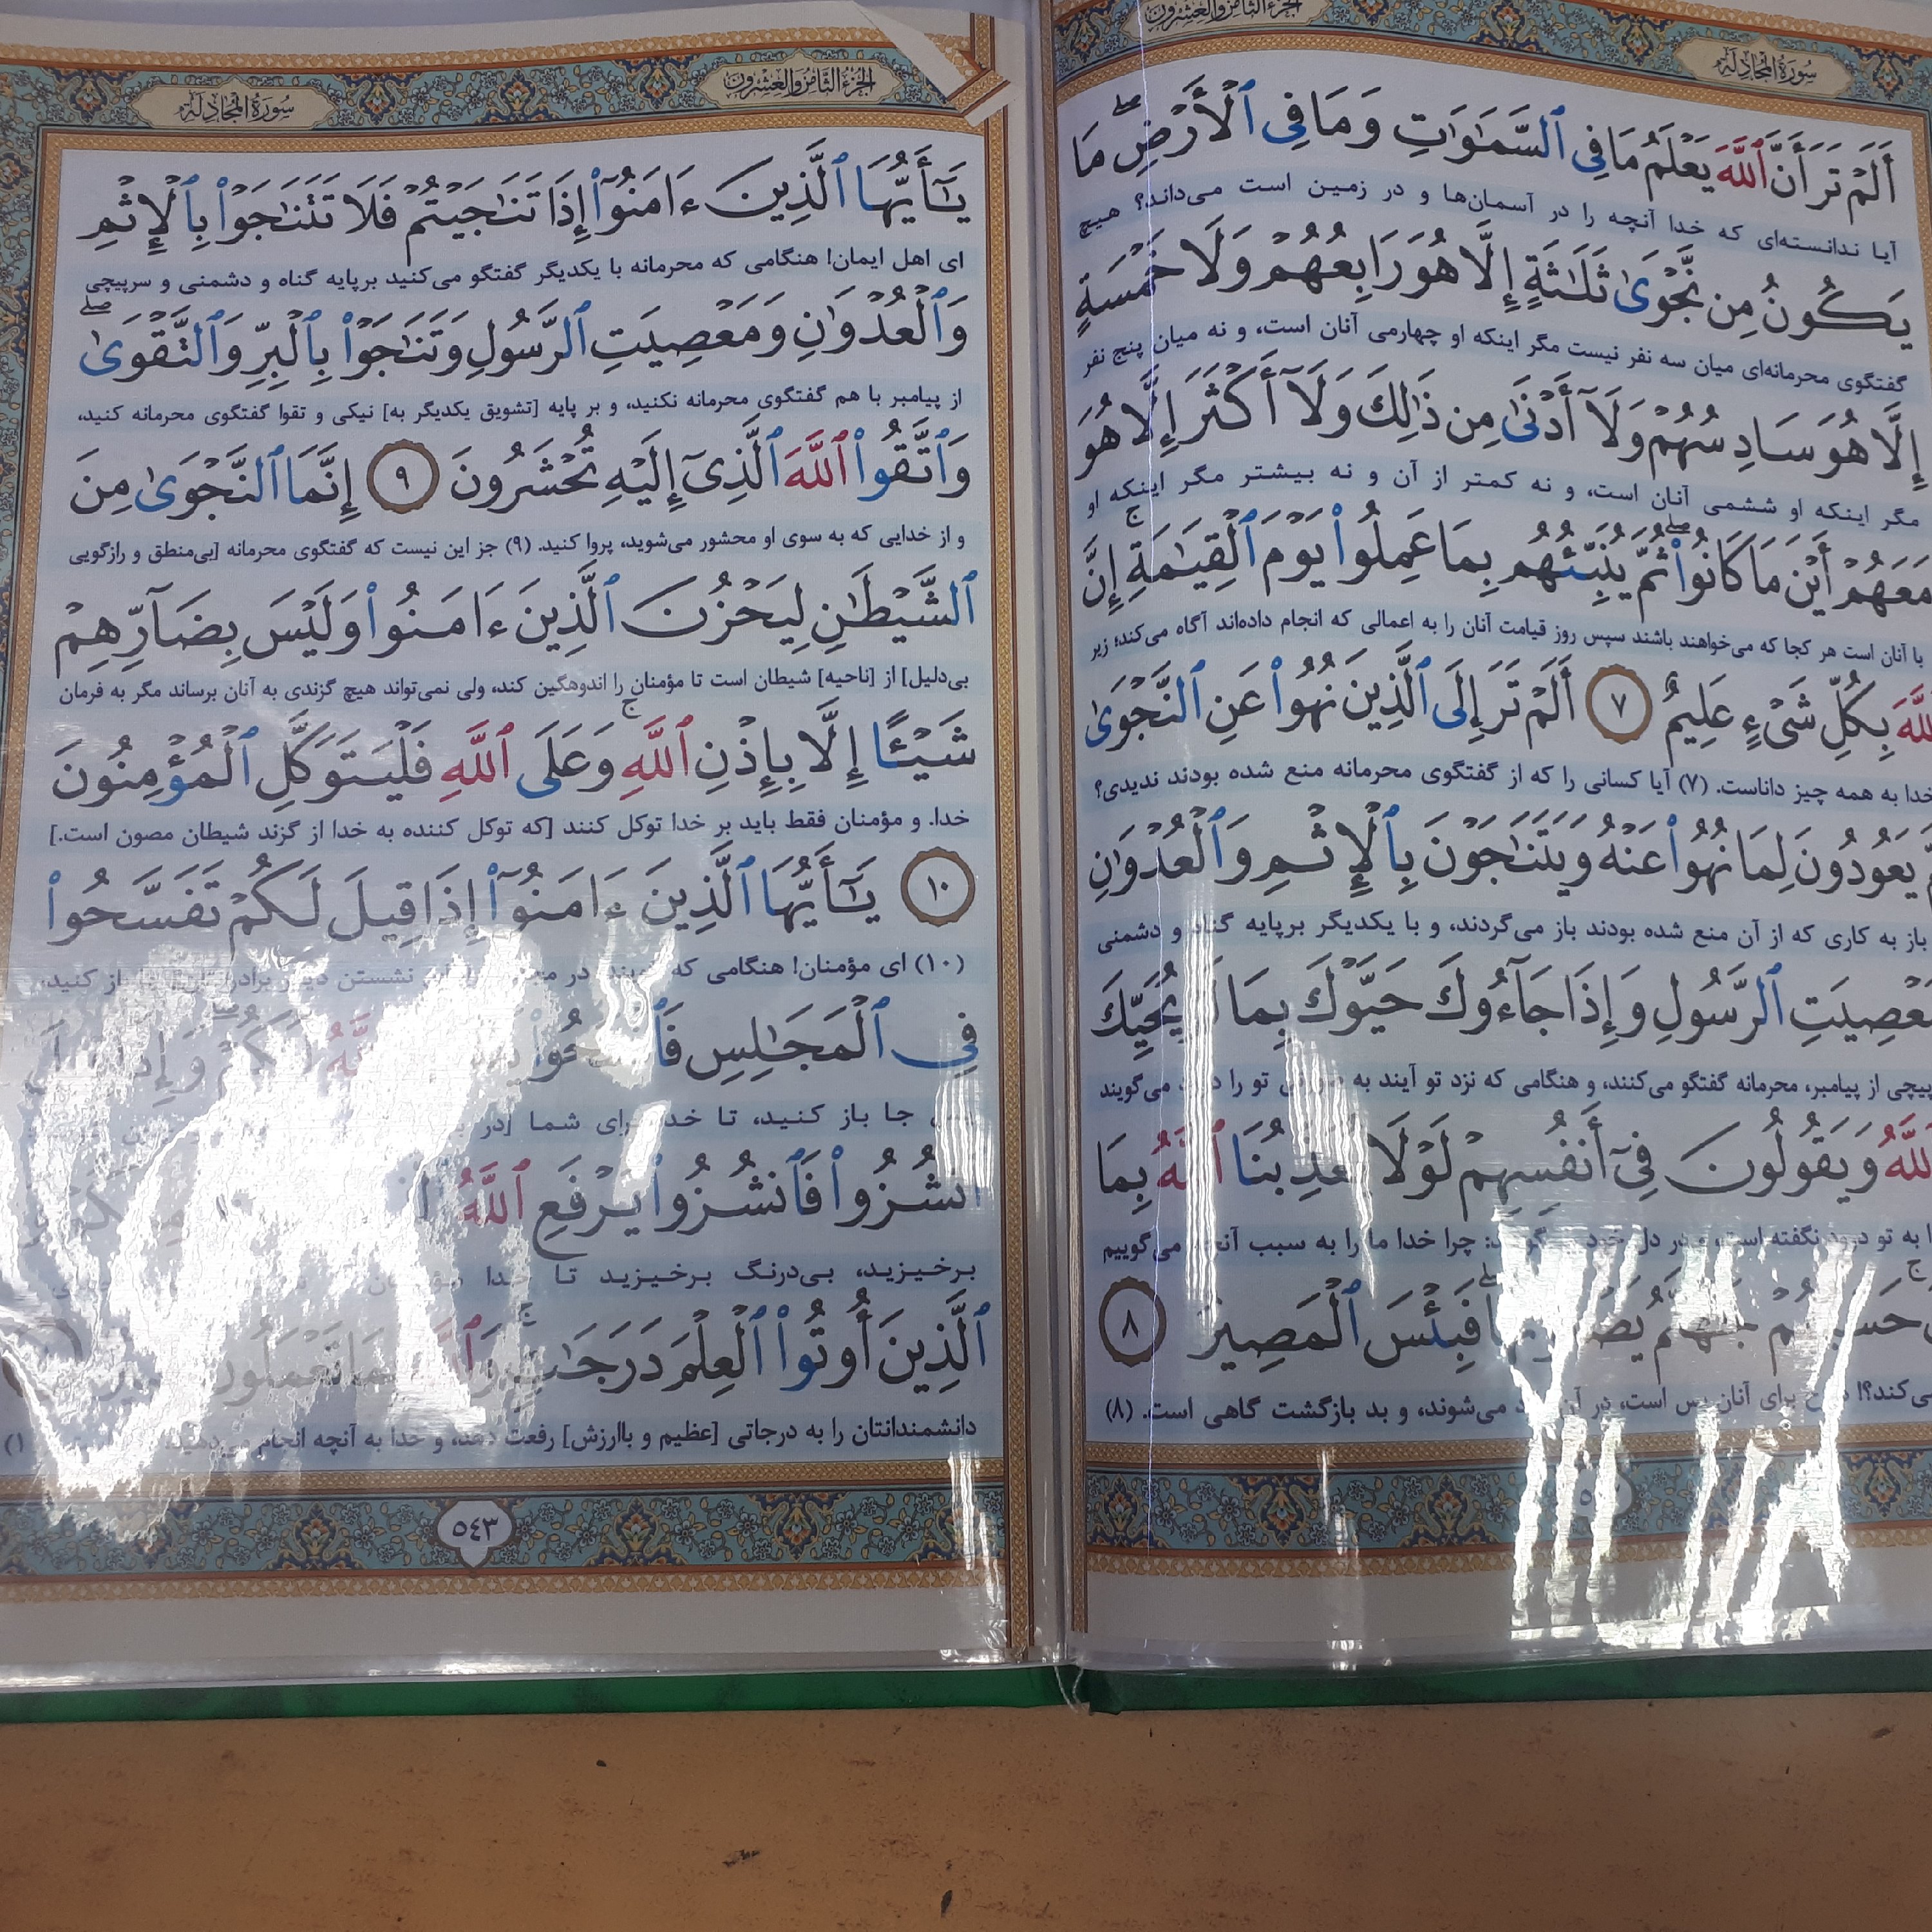 الجزء الثامن والعشرون
سورة المجادلة
أَلَمْ تَرَ أَنَّ ٱللَّهَ يَعْلَمُ مَا فِى ٱلسَّمَـٰوَٰتِ وَمَا فِى ٱلْأَرْضِ ۖ مَا
آیا ندانسته‌ای که خدا آنچه را در آسمان‌ها و در زمین است می‌داند؟ هیچ
يَكُونُ مِن نَّجْوَىٰ ثَلَـٰثَةٍ إِلَّا هُوَ رَابِعُهُمْ وَلَا خَمْسَةٍ
گفتگوی محرمانه‌ای میان سه نفر نیست مگر اینکه او چهارمی آنان است، و نه میان پنج نفر
إِلَّا هُوَ سَادِسُهُمْ وَلَآ أَدْنَىٰ مِن ذَٰلِكَ وَلَآ أَكْثَرَ إِلَّا هُوَ
مگر اینکه او ششمی آنان است، و نه کمتر از آن و نه بیشتر مگر اینکه او
مَعَهُمْ أَيْنَ مَا كَانُوا۟ ۖ ثُمَّ يُنَبِّئُهُم بِمَا عَمِلُوا۟ يَوْمَ ٱلْقِيَـٰمَةِ ۚ إِنَّ
با آنان است هر کجا که می‌خواهند باشند سپس روز قیامت آنان را به اعمالی که انجام داده‌اند آگاه می‌کند؛ زیر
ٱللَّهَ بِكُلِّ شَىْءٍ عَلِيمٌ ٧ أَلَمْ تَرَ إِلَى ٱلَّذِينَ نُهُوا۟ عَنِ ٱلنَّجْوَىٰ
خدا به همه چیز داناست. (۷) آیا کسانی را که از گفتگوی محرمانه منع شده بودند ندیدی؟
يَعُودُونَ لِمَا نُهُوا۟ عَنْهُ وَيَتَنَـٰجَوْنَ بِٱلْإِثْمِ وَٱلْعُدْوَٰنِ
باز به کاری که از آن منع شده بودند باز می‌گردند، و با یکدیگر برپایه گناه و دشمنی
ٱلرَّسُولِ وَإِذَا جَآءُوكَ حَيَّوْكَ بِمَا لَمْ يُحَيِّكَ
از پیامبر، محرمانه گفتگو می‌کنند، و هنگامی که نزد تو آیند به تو را می‌گویند
ٱللَّهُ وَيَقُولُونَ فِىٓ أَنفُسِهِمْ لَوْلَا يُعَذِّبُنَا ٱللَّهُ بِمَا
به تو درود نگفته است، و در دل خود چرا خدا ما را به سبب آنچه می‌گوییم
جَهَنَّمُ فَبِئْسَ ٱلْمَصِيرُ ٨
برای آنان بس است، در آن می‌شوند، و بد بازگشت گاهی است. (۸)
الجزء الثامن والعشرون
سورة المجادلة
يَـٰٓأَيُّهَا ٱلَّذِينَ ءَامَنُوٓا۟ إِذَا تَنَـٰجَيْتُمْ فَلَا تَتَنَـٰجَوْا۟ بِٱلْإِثْمِ
ای اهل ایمان! هنگامی که محرمانه با یکدیگر گفتگو می‌کنید برپایه گناه و دشمنی و سرپیچی
وَٱلْعُدْوَٰنِ وَمَعْصِيَتِ ٱلرَّسُولِ وَتَنَـٰجَوْا۟ بِٱلْبِرِّ وَٱلتَّقْوَىٰ ۖ
از پیامبر با هم گفتگوی محرمانه نکنید، و بر پایه [تشویق یکدیگر به] نیکی و تقوا گفتگوی محرمانه کنید،
وَٱتَّقُوا۟ ٱللَّهَ ٱلَّذِىٓ إِلَيْهِ تُحْشَرُونَ ٩ إِنَّمَا ٱلنَّجْوَىٰ مِنَ
و از خدایی که به سوی او محشور می‌شوید، پروا کنید. (۹) جز این نیست که گفتگوی محرمانه [بی‌منطق و رازگویی
ٱلشَّيْطَـٰنِ لِيَحْزُنَ ٱلَّذِينَ ءَامَنُوا۟ وَلَيْسَ بِضَآرِّهِمْ
بی‌دلیل] از [ناحیه] شیطان است تا مؤمنان را اندوهگین کند، ولی نمی‌تواند هیچ گزندی به آنان برساند مگر به فرمان
شَيْـًٔا إِلَّا بِإِذْنِ ٱللَّهِ ۚ وَعَلَى ٱللَّهِ فَلْيَتَوَكَّلِ ٱلْمُؤْمِنُونَ
خدا. و مؤمنان فقط باید بر خدا توکل کنند [که توکل کننده به خدا از گزند شیطان مصون است.]
١٠ يَـٰٓأَيُّهَا ٱلَّذِينَ ءَامَنُوٓا۟ إِذَا قِيلَ لَكُمْ تَفَسَّحُوا۟
(۱۰) ای مؤمنان! هنگامی که در نشستن باز کنید،
فِى ٱلْمَجَـٰلِسِ لَكُمْ
جا باز کنید، تا خدا برای شما
ٱنشُزُوا۟ فَٱنشُزُوا۟ يَرْفَعِ ٱللَّهُ
برخیزید، بی‌درنگ برخیزید تا خدا
ٱلَّذِينَ أُوتُوا۟ ٱلْعِلْمَ دَرَجَـٰتٍ ۚ تَعْمَلُونَ
دانشمندانتان را به درجاتی [عظیم و باارزش] رفعت دهد، و خدا به آنچه انجام می‌دهید،
٥٤٣